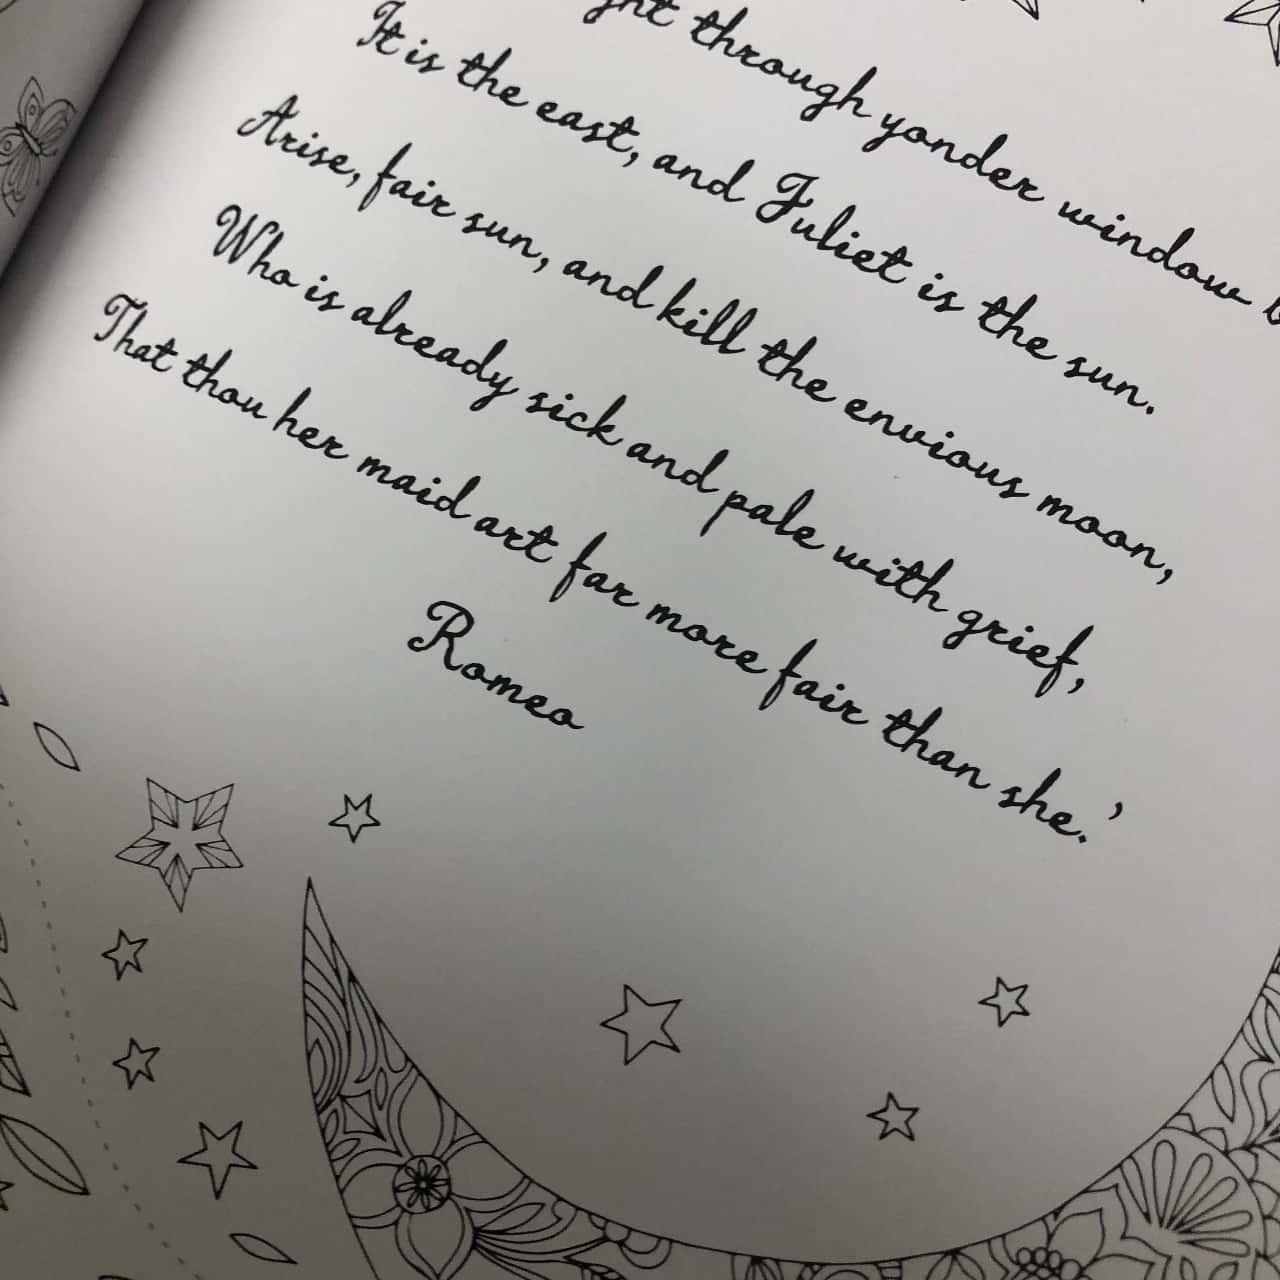 through yonder window
It is the east, and Juliet is the sun.
Arise, fair sun, and kill the envious moon,
Who is already sick and pale with grief,
That thou her maid art far more fair than she.'
Romeo